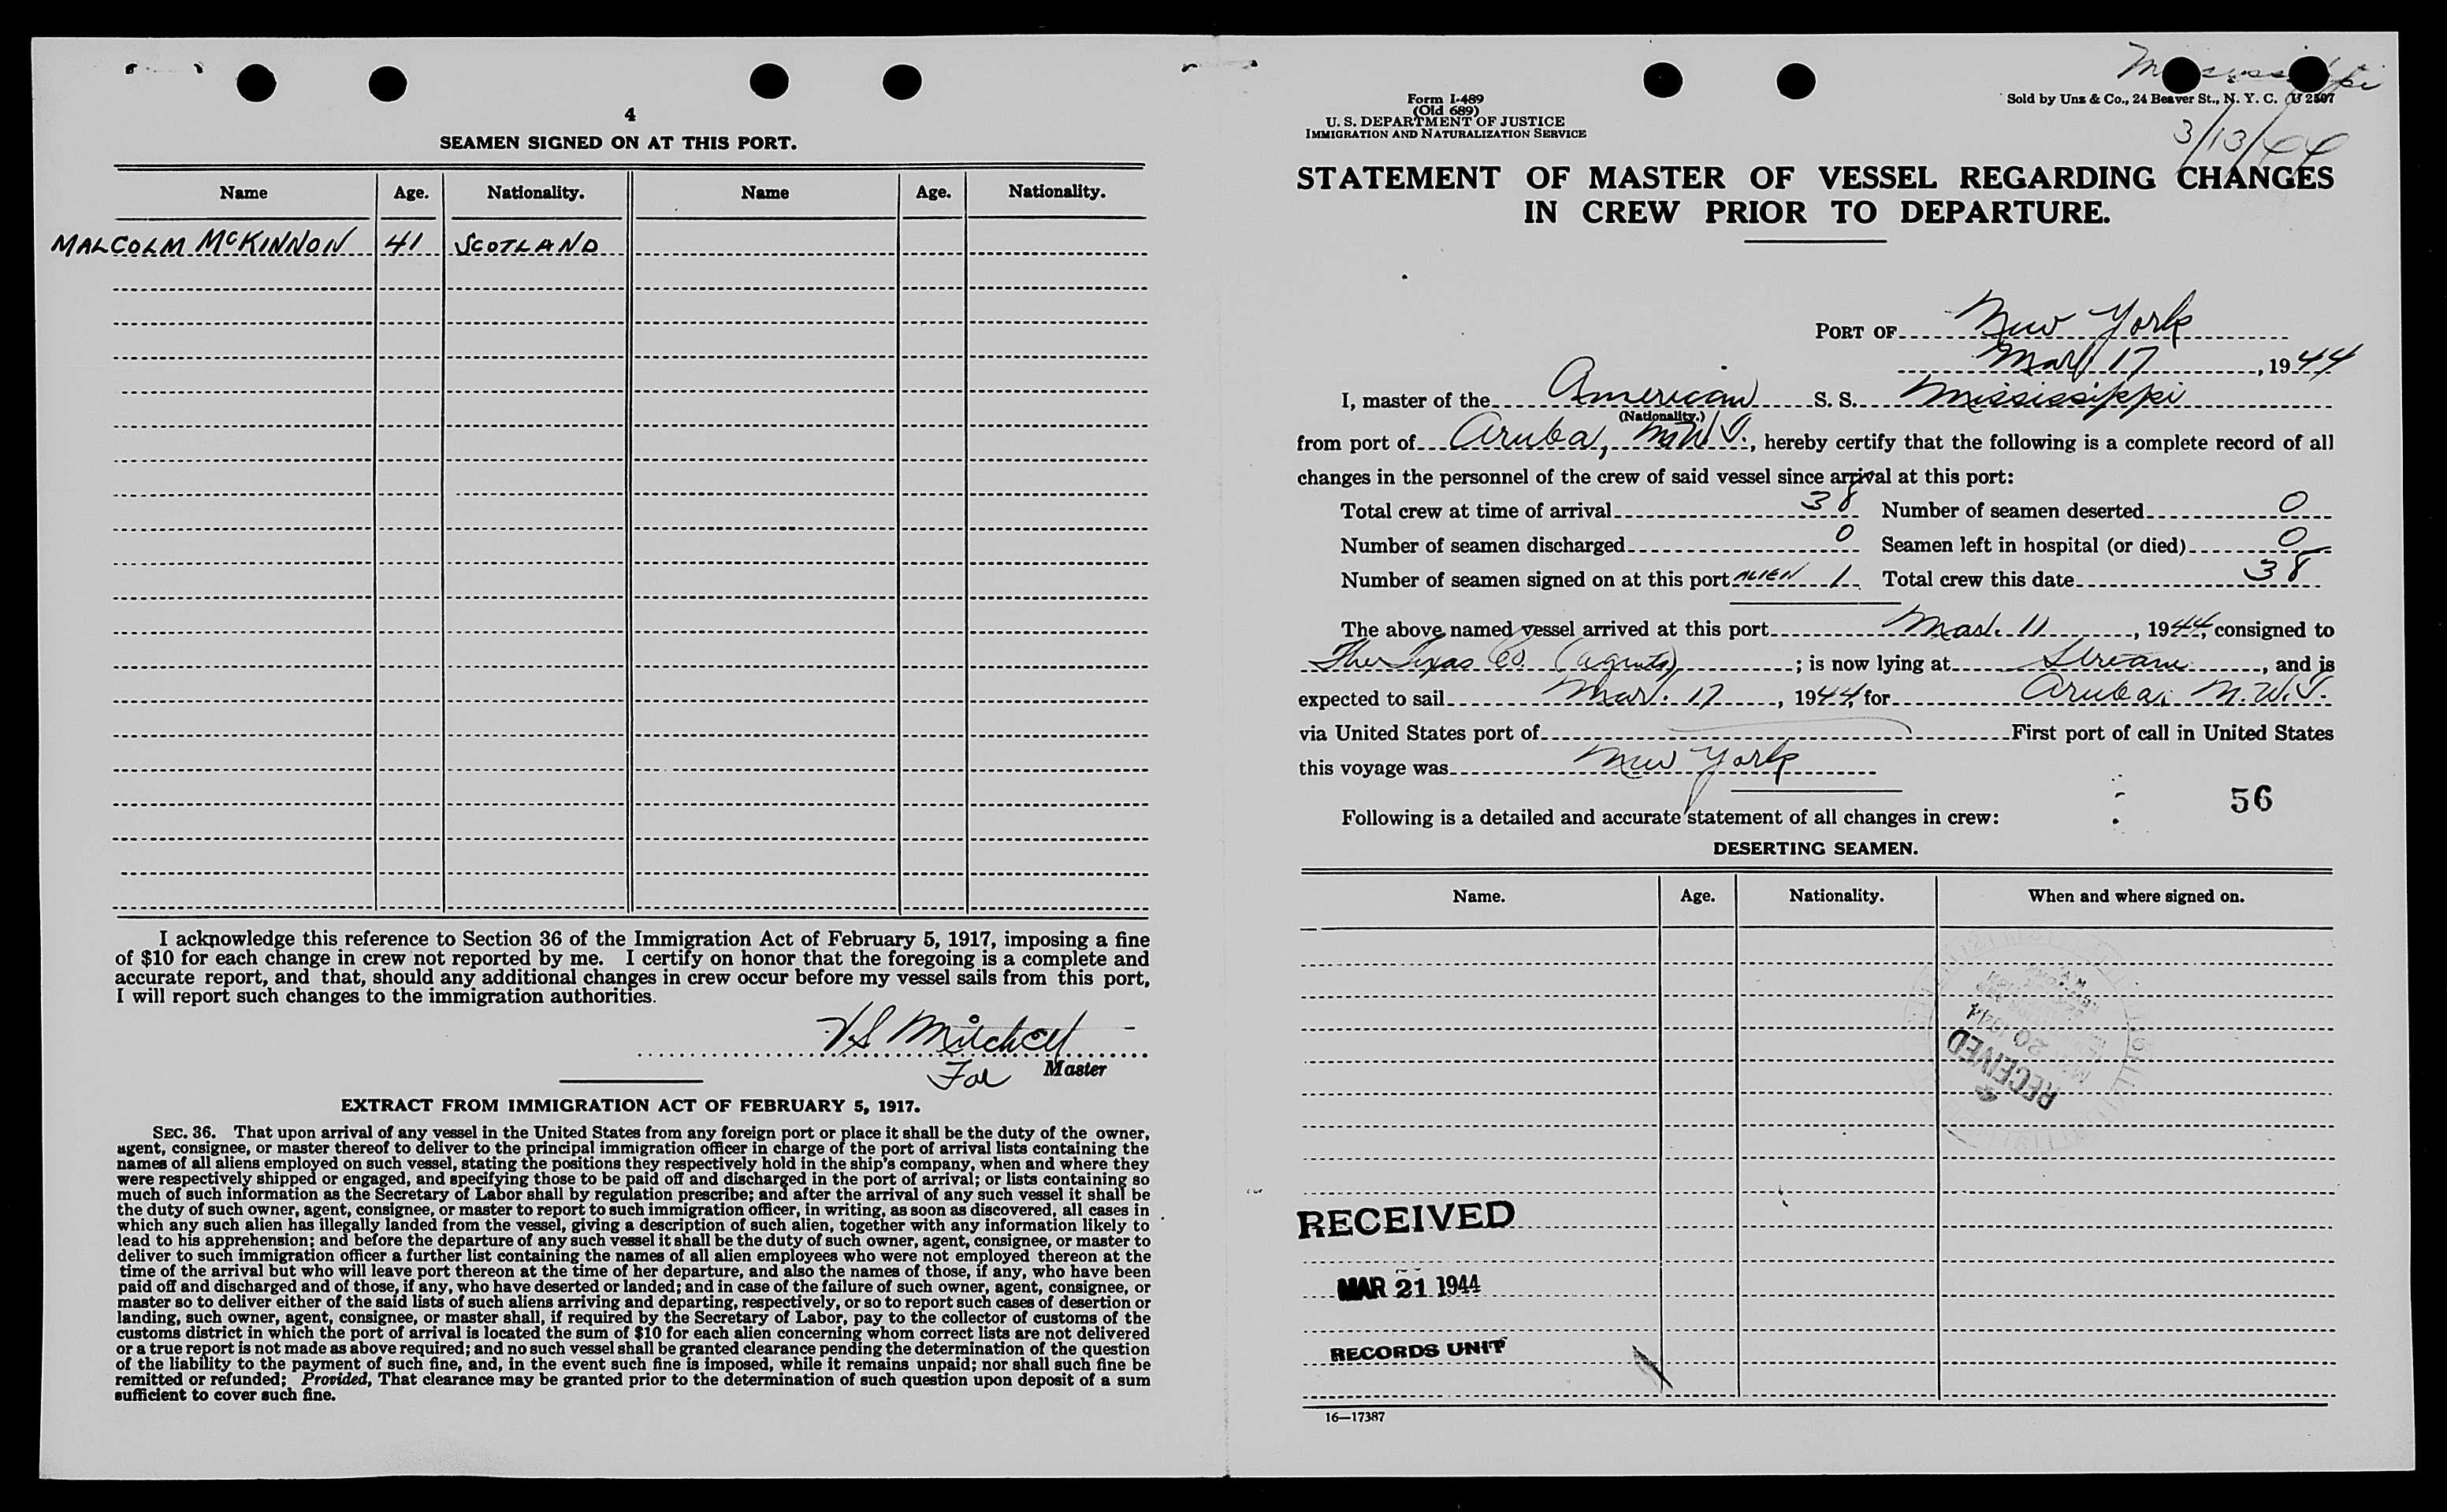 4
SEAMEN SIGNED ON AT THIS PORT.
Name Age. Nationality. Name Age. Nationality.
MALCOLM McKINNON 41 SCOTLAND
I acknowledge this reference to Section 36 of the Immigration Act of February 5, 1917, imposing a fine
of $10 for each change in crew not reported by me. I certify on honor that the foregoing is a complete and
accurate report, and that, should any additional changes in crew occur before my vessel sails from this port,
I will report such changes to the immigration authorities.
VS Mitchell
For Master
EXTRACT FROM IMMIGRATION ACT OF FEBRUARY 5, 1917.
SEC. 36. That upon arrival of any vessel in the United States from any foreign port or place it shall be the duty of the owner,
agent, consignee, or master thereof to deliver to the principal immigration officer in charge of the port of arrival lists containing the
names of all aliens employed on such vessel, stating the positions they respectively hold in the ship's company, when and where they
were respectively shipped or engaged, and specifying those to be paid off and discharged in the port of arrival; or lists containing so
much of such information as the Secretary of Labor shall by regulation prescribe; and after the arrival of any such vessel it shall be
the duty of such owner, agent, consignee, or master to report to such immigration officer, in writing, as soon as discovered, all cases in
which any such alien has illegally landed from the vessel, giving a description of such alien, together with any information likely to
lead to his apprehension; and before the departure of any such vessel it shall be the duty of such owner, agent, consignee, or master to
deliver to such immigration officer a further list containing the names of all alien employees who were not employed thereon at the
time of the arrival but who will leave port thereon at the time of her departure, and also the names of those, if any, who have been
paid off and discharged and of those, if any, who have deserted or landed; and in case of the failure of such owner, agent, consignee, or
master so to deliver either of the said lists of such aliens arriving and departing, respectively, or so to report such cases of desertion or
landing, such owner, agent, consignee, or master shall, if required by the Secretary of Labor, pay to the collector of customs of the
customs district in which the port of arrival is located the sum of $10 for each alien concerning whom correct lists are not delivered
or a true report is not made as above required; and no such vessel shall be granted clearance pending the determination of the question
of the liability to the payment of such fine, and, in the event such fine is imposed, while it remains unpaid; nor shall such fine be
remitted or refunded; Provided, That clearance may be granted prior to the determination of such question upon deposit of a sum
sufficient to cover such fine.
Mississippi
Form I-489
(Old 689)
U. S. DEPARTMENT OF JUSTICE
IMMIGRATION AND NATURALIZATION SERVICE
Sold by Unz & Co., 24 Beaver St., N. Y. C. U 2507
3/13/44
STATEMENT OF MASTER OF VESSEL REGARDING CHANGES
IN CREW PRIOR TO DEPARTURE.
PORT OF New York
Mar 17, 1944
I, master of the American S. S. Mississippi
(Nationality.)
from port of Aruba, N.W.I., hereby certify that the following is a complete record of all
changes in the personnel of the crew of said vessel since arrival at this port:
Total crew at time of arrival 38 Number of seamen deserted 0
Number of seamen discharged 0 Seamen left in hospital (or died) 0
Number of seamen signed on at this port ALIEN 1 Total crew this date 38
The above named vessel arrived at this port Mar. 11, 1944, consigned to
The Texas Co (agents); is now lying at Stream, and is
expected to sail Mar. 17, 1944, for Aruba, N.W.I.
via United States port of First port of call in United States
this voyage was New York
56
Following is a detailed and accurate statement of all changes in crew:
DESERTING SEAMEN.
Name. Age. Nationality. When and where signed on.
RECEIVED
20 1944
RECEIVED
MAR 21 1944
RECORDS UNIT
16—17387